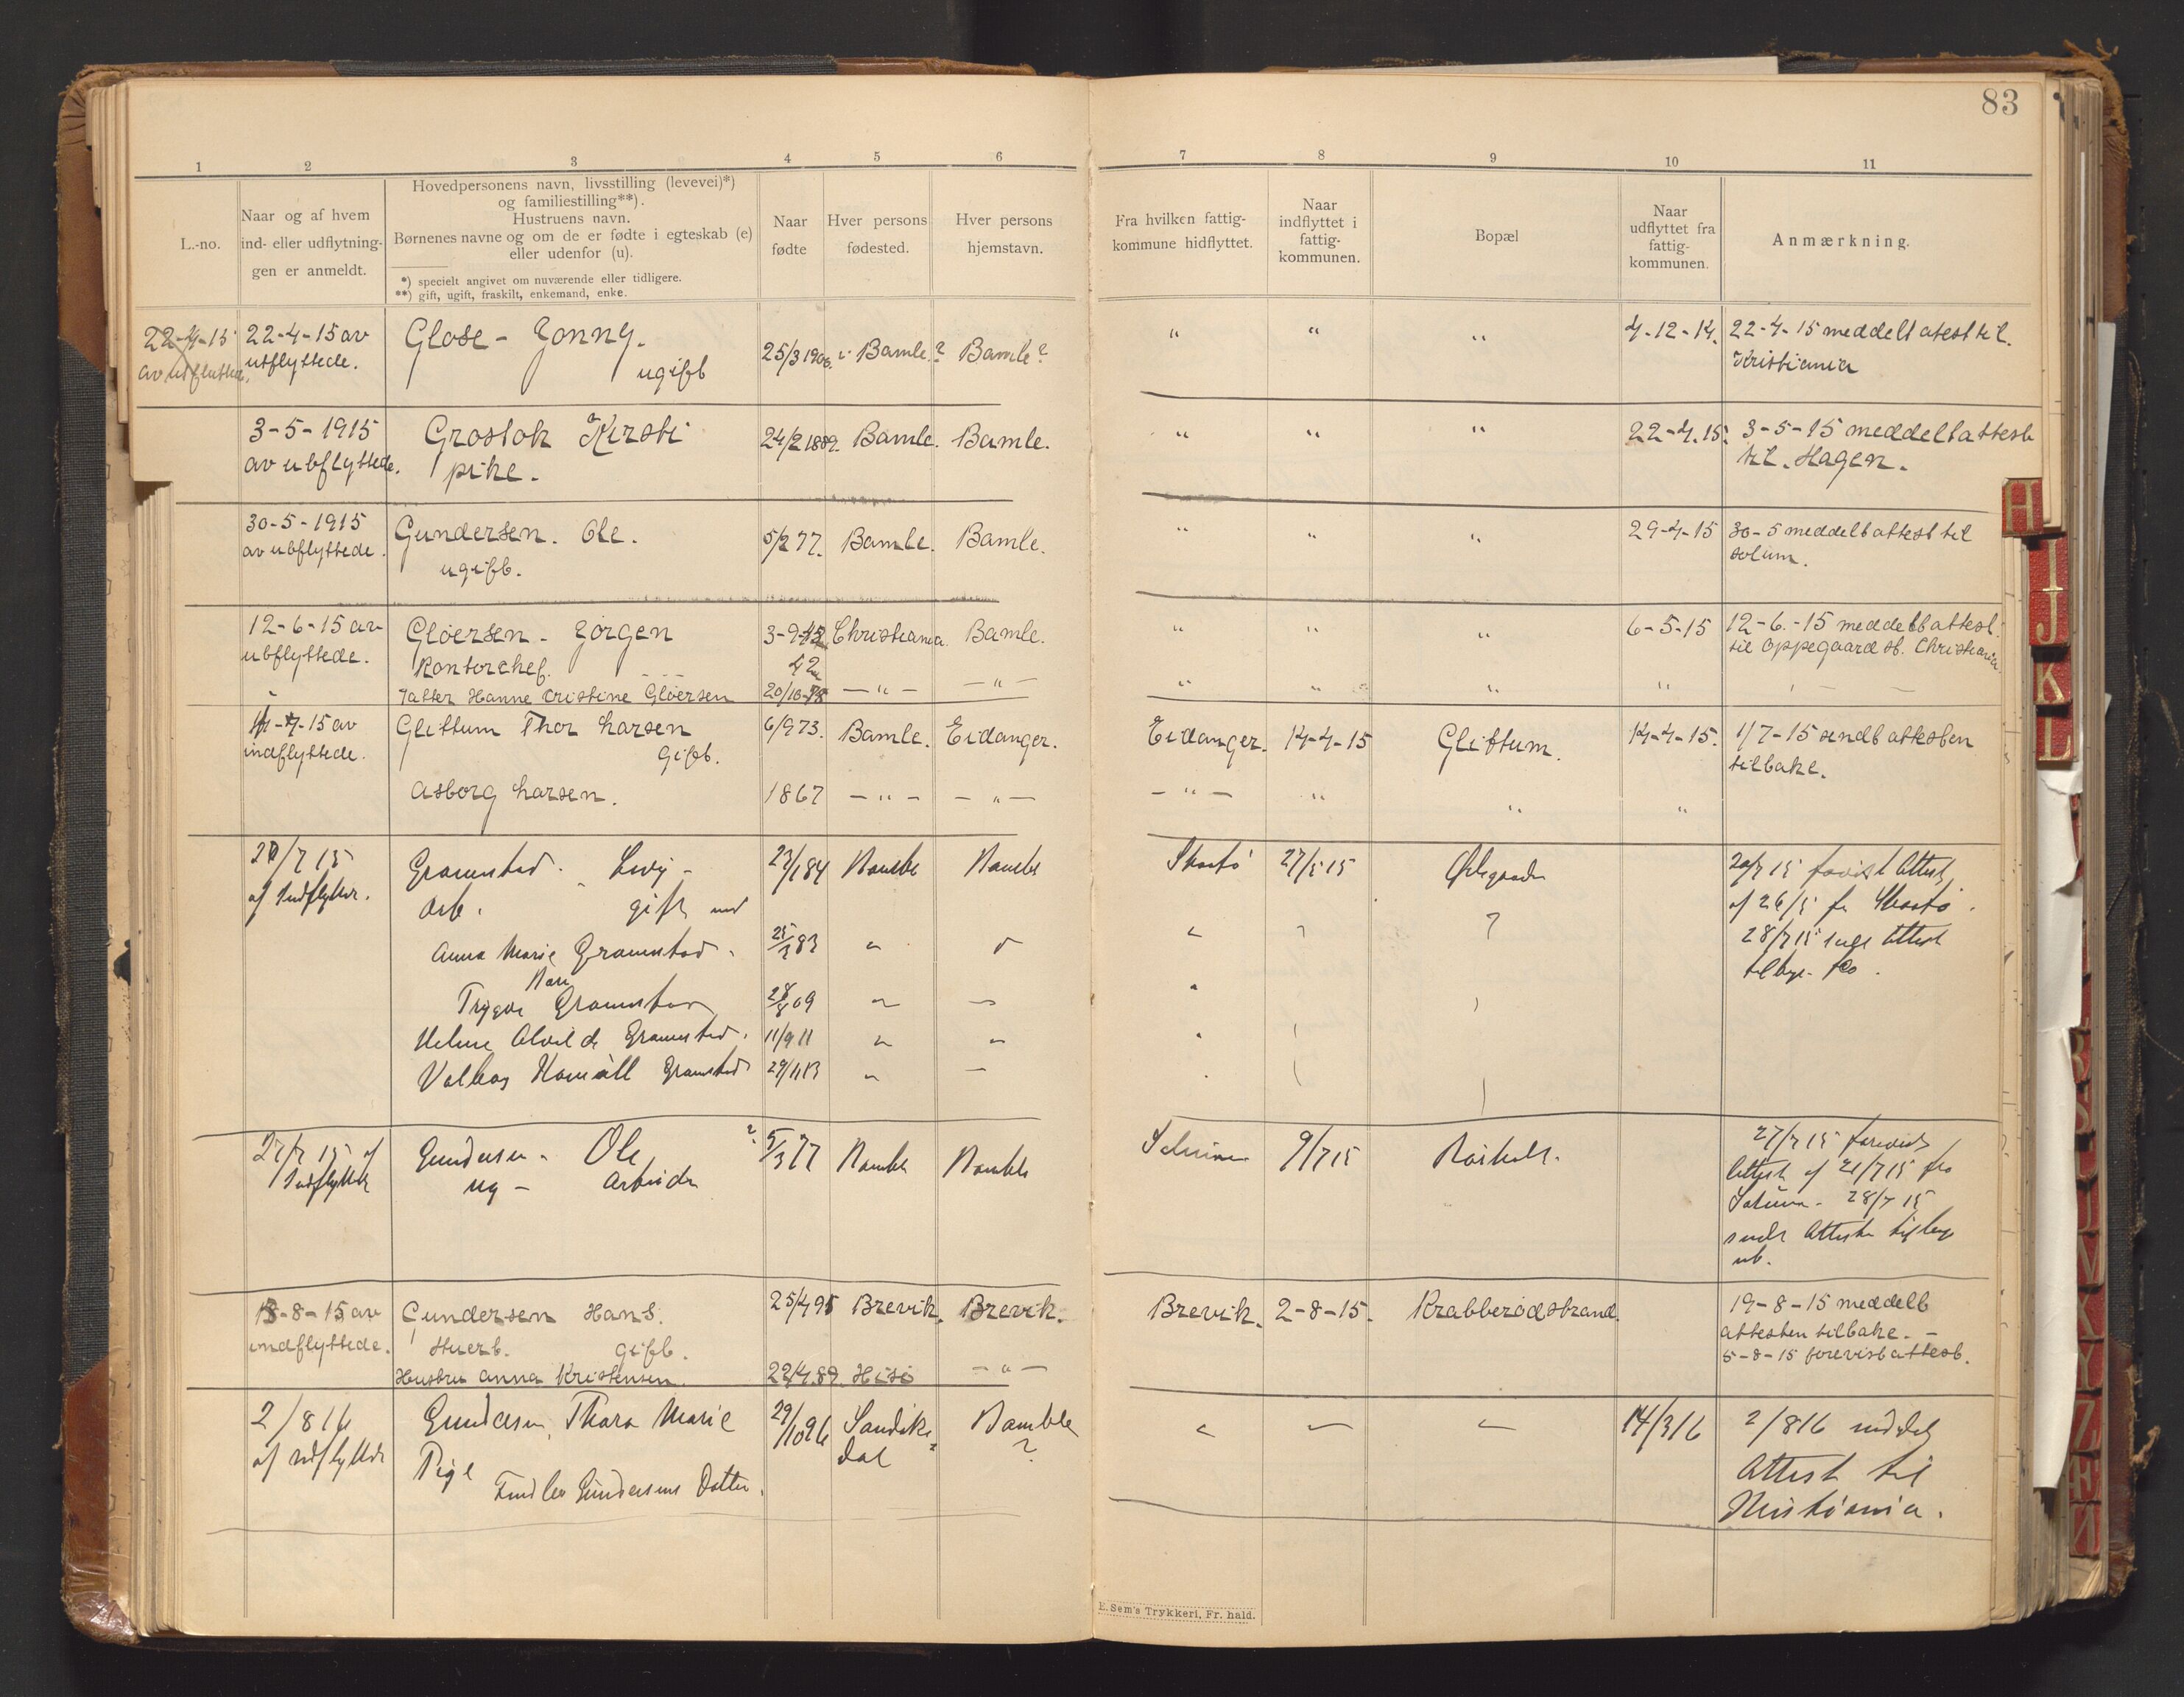 83
1 2 3 4 5 6 7 8 9 10 11
L.-no.
Naar og af hvem
ind- eller udflytnin-
gen er anmeldt.
Hovedpersonens navn, livsstilling (levevei)*)
og familiestilling**).
Hustruens navn.
Børnenes navne og om de er fødte i egteskab (e)
eller udenfor (u).
*) specielt angivet om nuværende eller tidligere.
**) gift, ugift, fraskilt, enkemand, enke.
Naar
fødte
Hver persons
fødested.
Hver persons
hjemstavn.
Fra hvilken fattig-
kommune hidflyttet.
Naar
indflyttet i
fattig-
kommunen.
Bopæl
Naar
udflyttet fra
fattig-
kommunen.
Anmærkning.
22-4-15 22-4-15 av Glose - Jonny. 25/3 1906. Bamle? Bamle? " " " 4-12-14. 22-4-15 meddelt atest til.
utflyttede. ugift Kristiania
3-5-1915 Grostok Kirsti 24/2 1889. Bamle. Bamle. " " " 22-4.15. 3-5-15 meddelt attest
av utflyttede. pike. til. Hagen.
30-5-1915 Gundersen. Ole. 5/2 77. Bamle. Bamle. " " " 29-4-15 30-5 meddelt attest til
av utflyttede. ugift. solum.
12-6-15 av Gløersen - Jørgen 3-9- Christiania. Bamle. " " " 6-5-15 12-6.-15 meddelt attest.
utflyttede. Kontorchef. 42 til Oppegaard st. Christiania
Datter Hanne Kristine Gløersen 20/10-78 - " - - " - " " " "
-15 av Glittum Thor Larsen 6/9 73. Bamle. Eidanger. Eidanger. 14-4-15 Glittum. 14-4-15. 1/7-15 sendt attesten
indflyttede. Gift. tilbake.
Asborg Larsen. 1867 - " - - " - - " - " " "
20/7 15 Gramstad. 27/1 84 Bamble Bamble Skaatø 27/5 15 20/7 15 forvist Attest
af Indflyttr. Arb. gift med af 26/5 fr Skaatø.
Anna Marie Gramstad. 25/3 83 " 28/7 15 Attest
Barn
Trygve Gramstad 28/8 09 "
Gramstad. 11/9 11 " "
Gramstad 29/11 13 "
27/7 15 af Gundersen. Ole ? 5/3 77 Bamble Bamble Solum 9/7 15 27/7 15 forevist
Indflyttr ug - Arbeider Attest af 21/7 15 fra
Solum. 28/7 15
sendt Attesten
-8-15 av Gundersen Hans. 25/4 95 Brevik. Brevik. Brevik. 2-8-15. Krabberødstrand. 19-8-15 meddelt
indflyttede. Stuert. gift. attesten tilbake. -
Hustru Anna Kristensen. 22/4 89. Hisø - " - 5-8-15 forevist attest.
2/8 16 Gundersen, Thora Marie 29/10 96 Sandøke- Bamble 14/3 16 2/8 16 meddelt
af Udflyttr Pige dal ? Attest til
Gundersens Datter. Kristiania.
E. Sem's Trykkeri, Fr. hald.
H
I
J
K
L